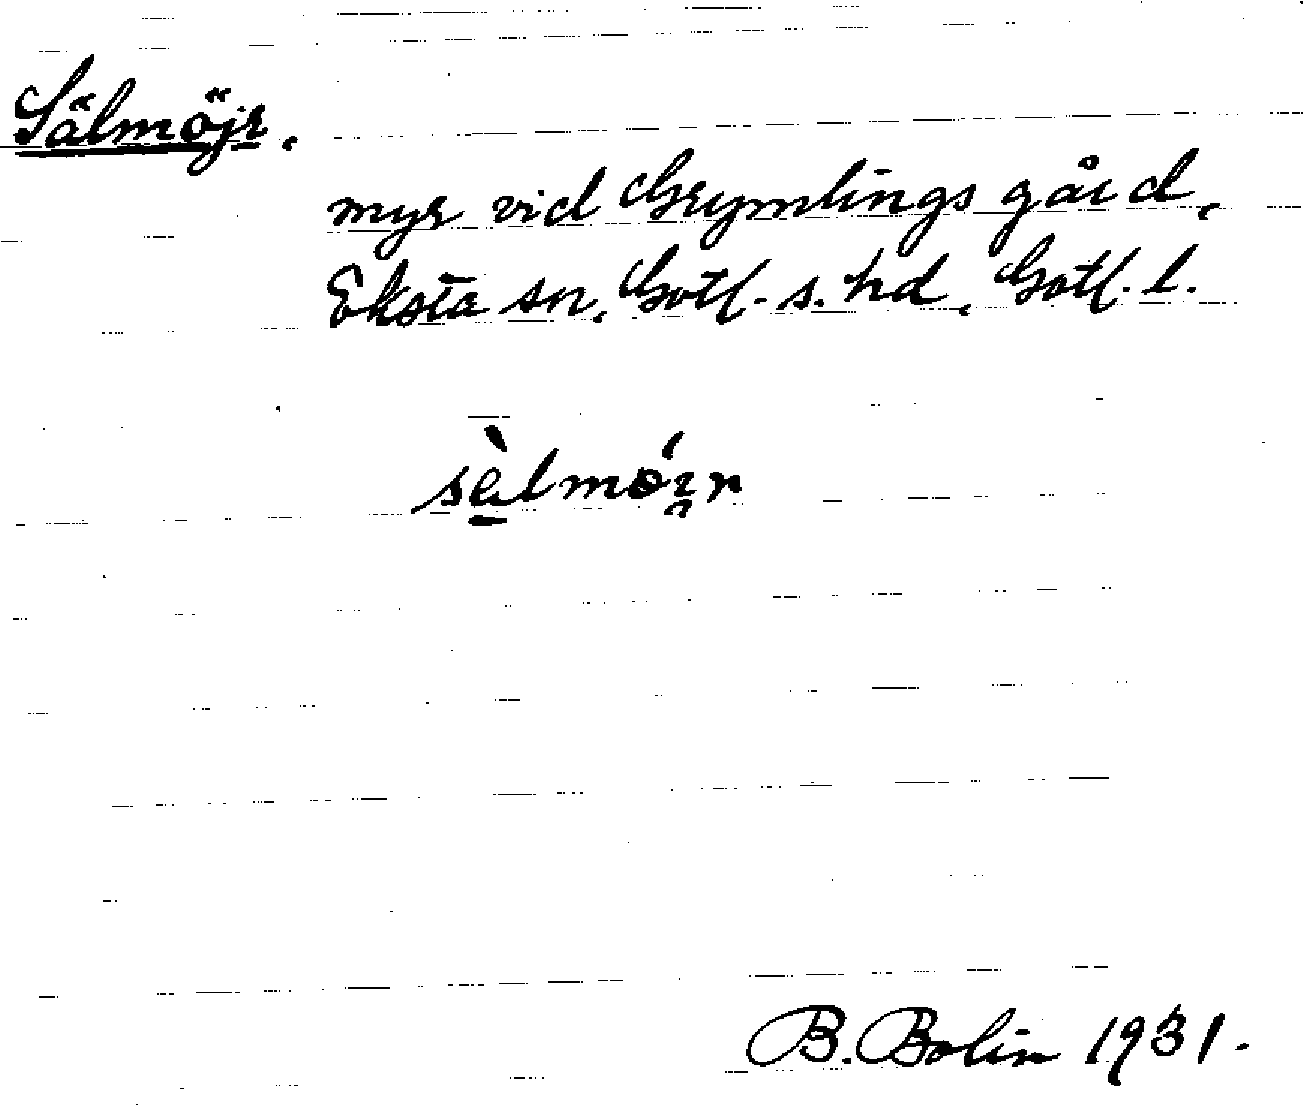 Sälmöjr.
myr vid Grymlings gård,
Eksta sn, Gotl. s. hd, Gotl. l.
sèlmóır
B. Bolin 1931.